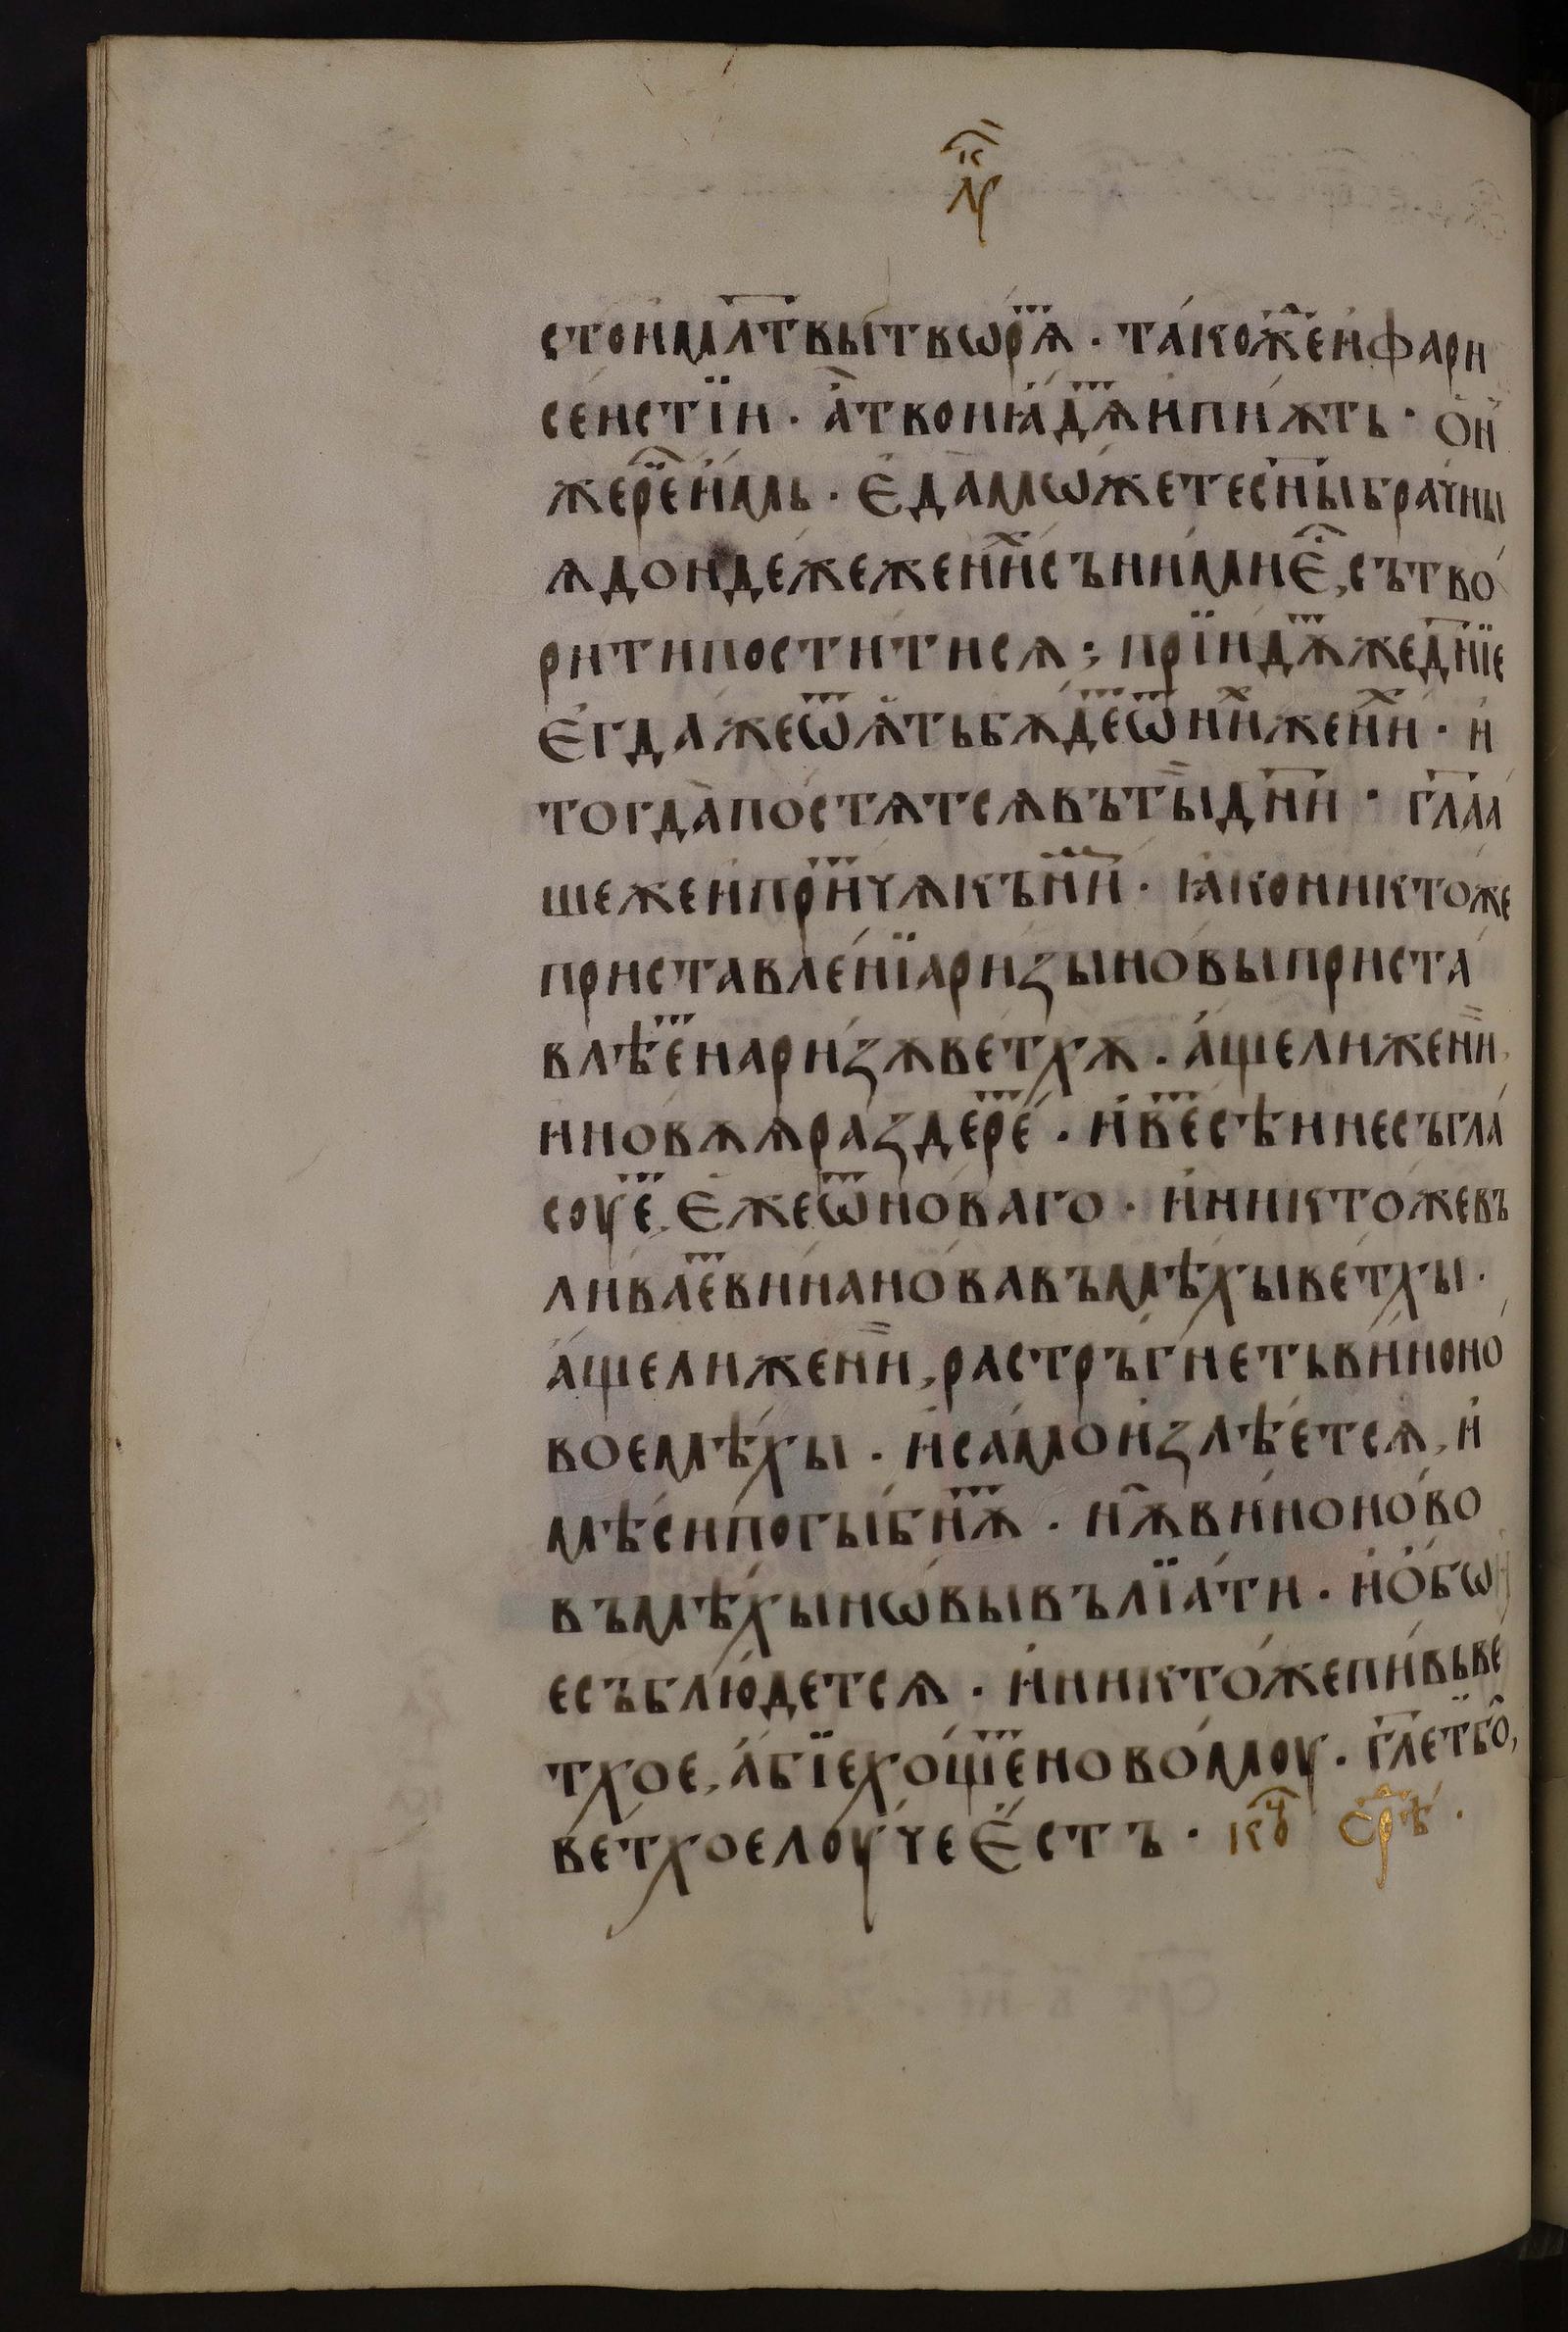 лр̑к
сто́имл҃твы́твѡрѧⷮ · та́кожⷣеи҆фари
се́истїи · а҆твоиꙗ҆дѧ́ⷮипиѫ́ть · ѻ҆н
жереⷱ҇и́мь · є҆да̀мѡ́жетесн҃ыбра́чны
ѧдо́ндежеженн҆хсъни́миє҆ⷭ҇,сътво
ритипости́тисѧ; прїи́дѫⷮжедн҃їе
є҆гда́жеѿѧ҆́тьбѫ́деⷮѿни́хжени́х · и҆
тогда̀постѧ́тсѧвъты̏дн҃и · гл҃аа
шежеи҆при́тⷱѫкъни́мⷨ · ꙗ҆́кониктоже
приставле́нїари́зыно́выприста
влѣ́еⷮнари́зѫве́тхѫ · а҆́щелижени̏,
ино́вѫѧ҆раздере́ⷮ · и҆ве́сеⷮѣинесъгла
соуе́ⷮ,є҆́жеѿно́ваго · и҆никто́жевъ
лива́еⷮвина́но́вавъмѣ́хыве́тхы ·
а҆́щелижени̏,растръ́гнетьви́ноно
воемѣ́хы · и҆са́моизлѣ́етсѧ,и҆
мѣ́сипогы́бнѫⷮ · нѫ̑ви́ноно́во
въмѣ́хынѡ́вывълїа́ти · и҆ѻ҆́бѡи
есъблюде́тсѧ · и҆никто́жепи́вьве
тхое,а҆́бїехо́щеⷮново́моу · гл҃етьбо̑,
ве́тхоелоу́чеє҆́стъ · коⷰ҇ срⷣѣ ·